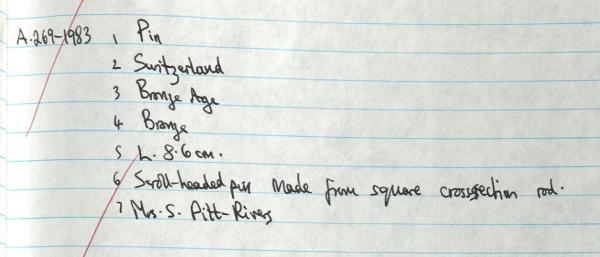 A.269-1983 1 Pin
2 Switzerland
3 Bronze Age
4 Bronze
5 L. 8.6cm.
6 Scroll-headed pin made from square crossection rod.
7 Mrs. S. Pitt-Rivers